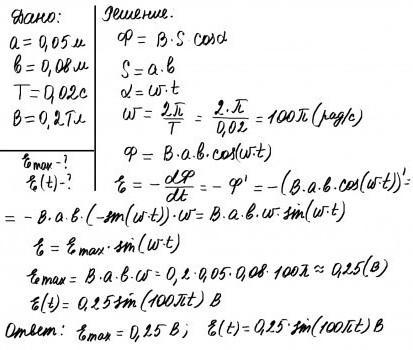 Дано:
a = 0,05 м
b = 0,08 м
T = 0,02 с
B = 0,2 Тл
Ɛmax - ?
Ɛ(t) - ?
Решение:
Ф = B · S cosα
S = a · b
α = ω · t
ω = 2π/T = 2·π/0,02 = 100π (рад/с)
Ф = B · a · b · cos(ω · t)
Ɛ = - dФ/dt = - Ф' = -(B · a · b · cos(ω·t))' =
= - B · a · b · (-sin(ω·t)) · ω = B · a · b · ω · sin(ω·t)
Ɛ = Ɛmax · sin(ω·t)
Ɛmax = B · a · b · ω = 0,2 · 0,05 · 0,08 · 100π ≈ 0,25 (В)
Ɛ(t) = 0,25 sin(100πt) В
Ответ: Ɛmax = 0,25 В; Ɛ(t) = 0,25 · sin(100πt) В